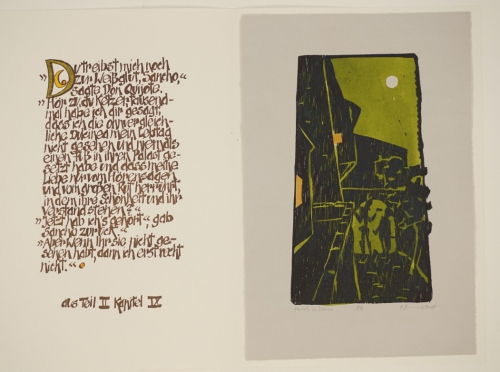 „Du treibst mich noch
zur Weißglut, Sancho,“
sagte Don Quijote.
„Hör zu, du Ketzer, tausend-
mal habe ich dir gesagt,
dass ich die unvergleich-
liche Dulcinea mein Lebtag
nicht gesehen und niemals
einen Fuß in ihren Palast ge-
setzt habe und dass meine
Liebe nur vom Hörensagen
und vom großen Ruf herrührt,
in dem ihre Schönheit und ihr
Verstand stehen?“
„Jetzt hab ich's gehört“, gab
Sancho zurück.
„Aber wenn Ihr sie nicht ge-
sehen habt, dann ich erst recht
nicht.“
aus Teil II Kapitel IX